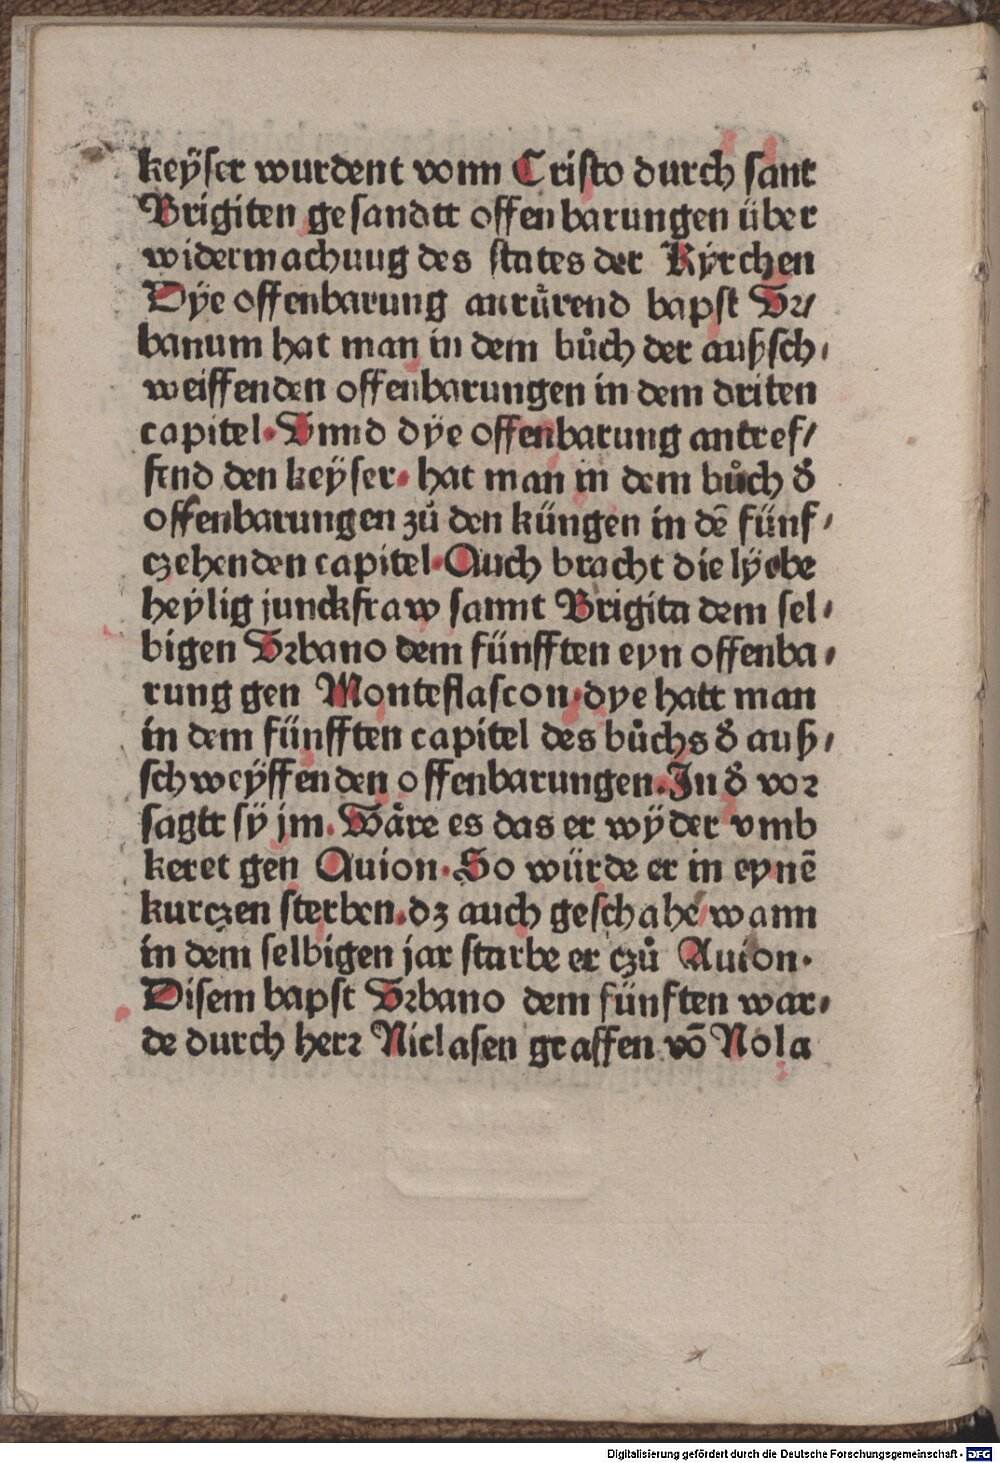 keÿser wurdent vonn Cristo durch sant
Brigiten gesandtt offenbarungen über
widermachuug des states der Kÿrchen
Dÿe offenbarung anrůrend bapst Vr⸗
banum hat man in dem bůch der außsch⸗
weiffenden offenbarungen in dem driten
capitel. Vnnd dÿe offenbarung antref⸗
fend den keÿser. hat man in dem bůch d̕
offenbarungen zů den küngen in dē fünf⸗
czehenden capitel. Auch bracht die lÿebe
heÿlig junckfraw sannt Brigita dem sel⸗
bigen Vrbano dem fünfften eyn offenba⸗
rung gen Monteflascon. dye hatt man
in dem fünfften capitel des bůchs d̕ auß⸗
schweÿffenden offenbarungen. In d̕ vor
sagtt sÿ jm. Wåre es das er wÿder vmb
keret gen Auion. So würde er in eynē
kurczen sterben. dz auch geschahe wann
in dem selbigen jar starbe er czů Auion.
Disem bapst Vrbano dem fünften war⸗
de durch herr Niclasen graffen vō Nola
Digitalisierung gefördert durch die Deutsche Forschungsgemeinschaft - DFG